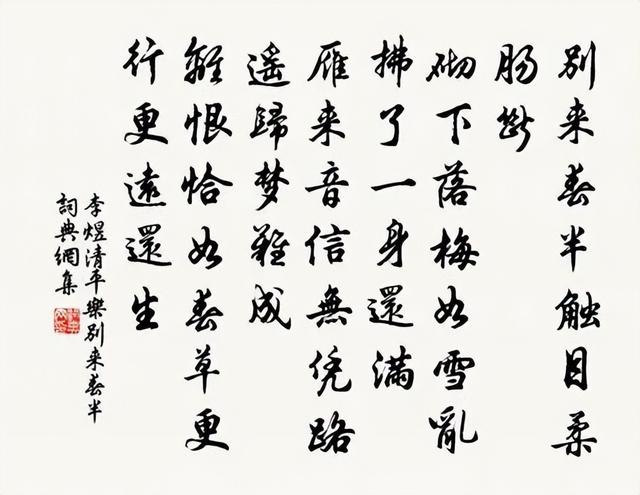 别来春半触目柔
肠断
砌下落梅如雪乱
拂了一身還满
雁来音信無凭路
遥歸梦難成
離恨恰如春草更
行更遠還生
李煜清平樂别来春半
詞典網集